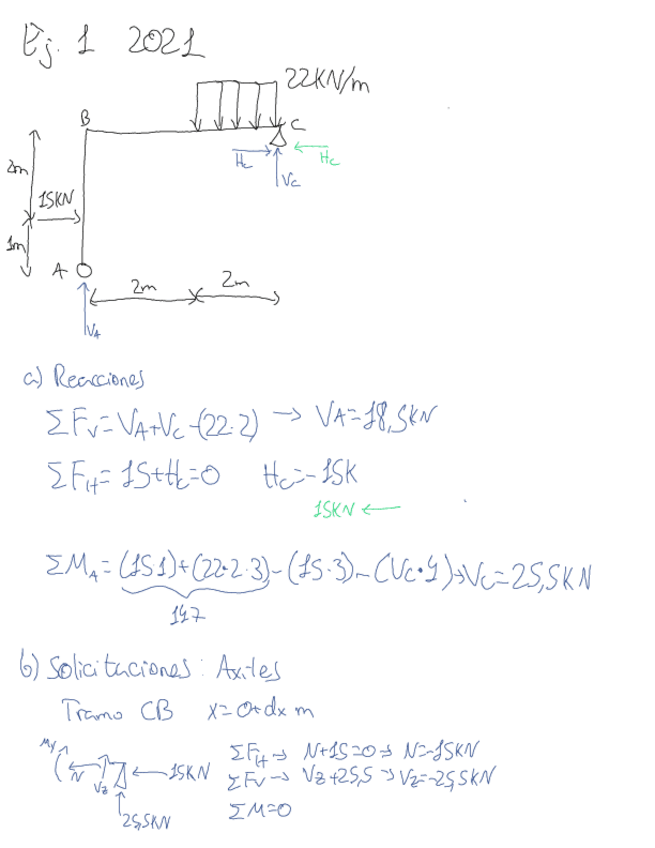 Ej. 1 2021
22KN/m
B
C
Hc
Hc
Vc
2m
15KN
1m
A
2m
2m
VA
a) Reacciones
ΣFv=VA+Vc-(22·2) → VA=18,5KN
ΣFH=15+Hc=0 Hc=-15K
15KN ←
ΣMA=(15·1)+(22·2·3)-(15·3)-(Vc·4)→Vc=25,5KN
147
b) Solicitaciones: Axiles
Tramo CB x=0+dx m
My
N
Vz
←15KN
25,5KN
ΣFH→ N+15=0→ N=-15KN
ΣFV→ Vz+25,5 → Vz=-25,5KN
ΣM=0